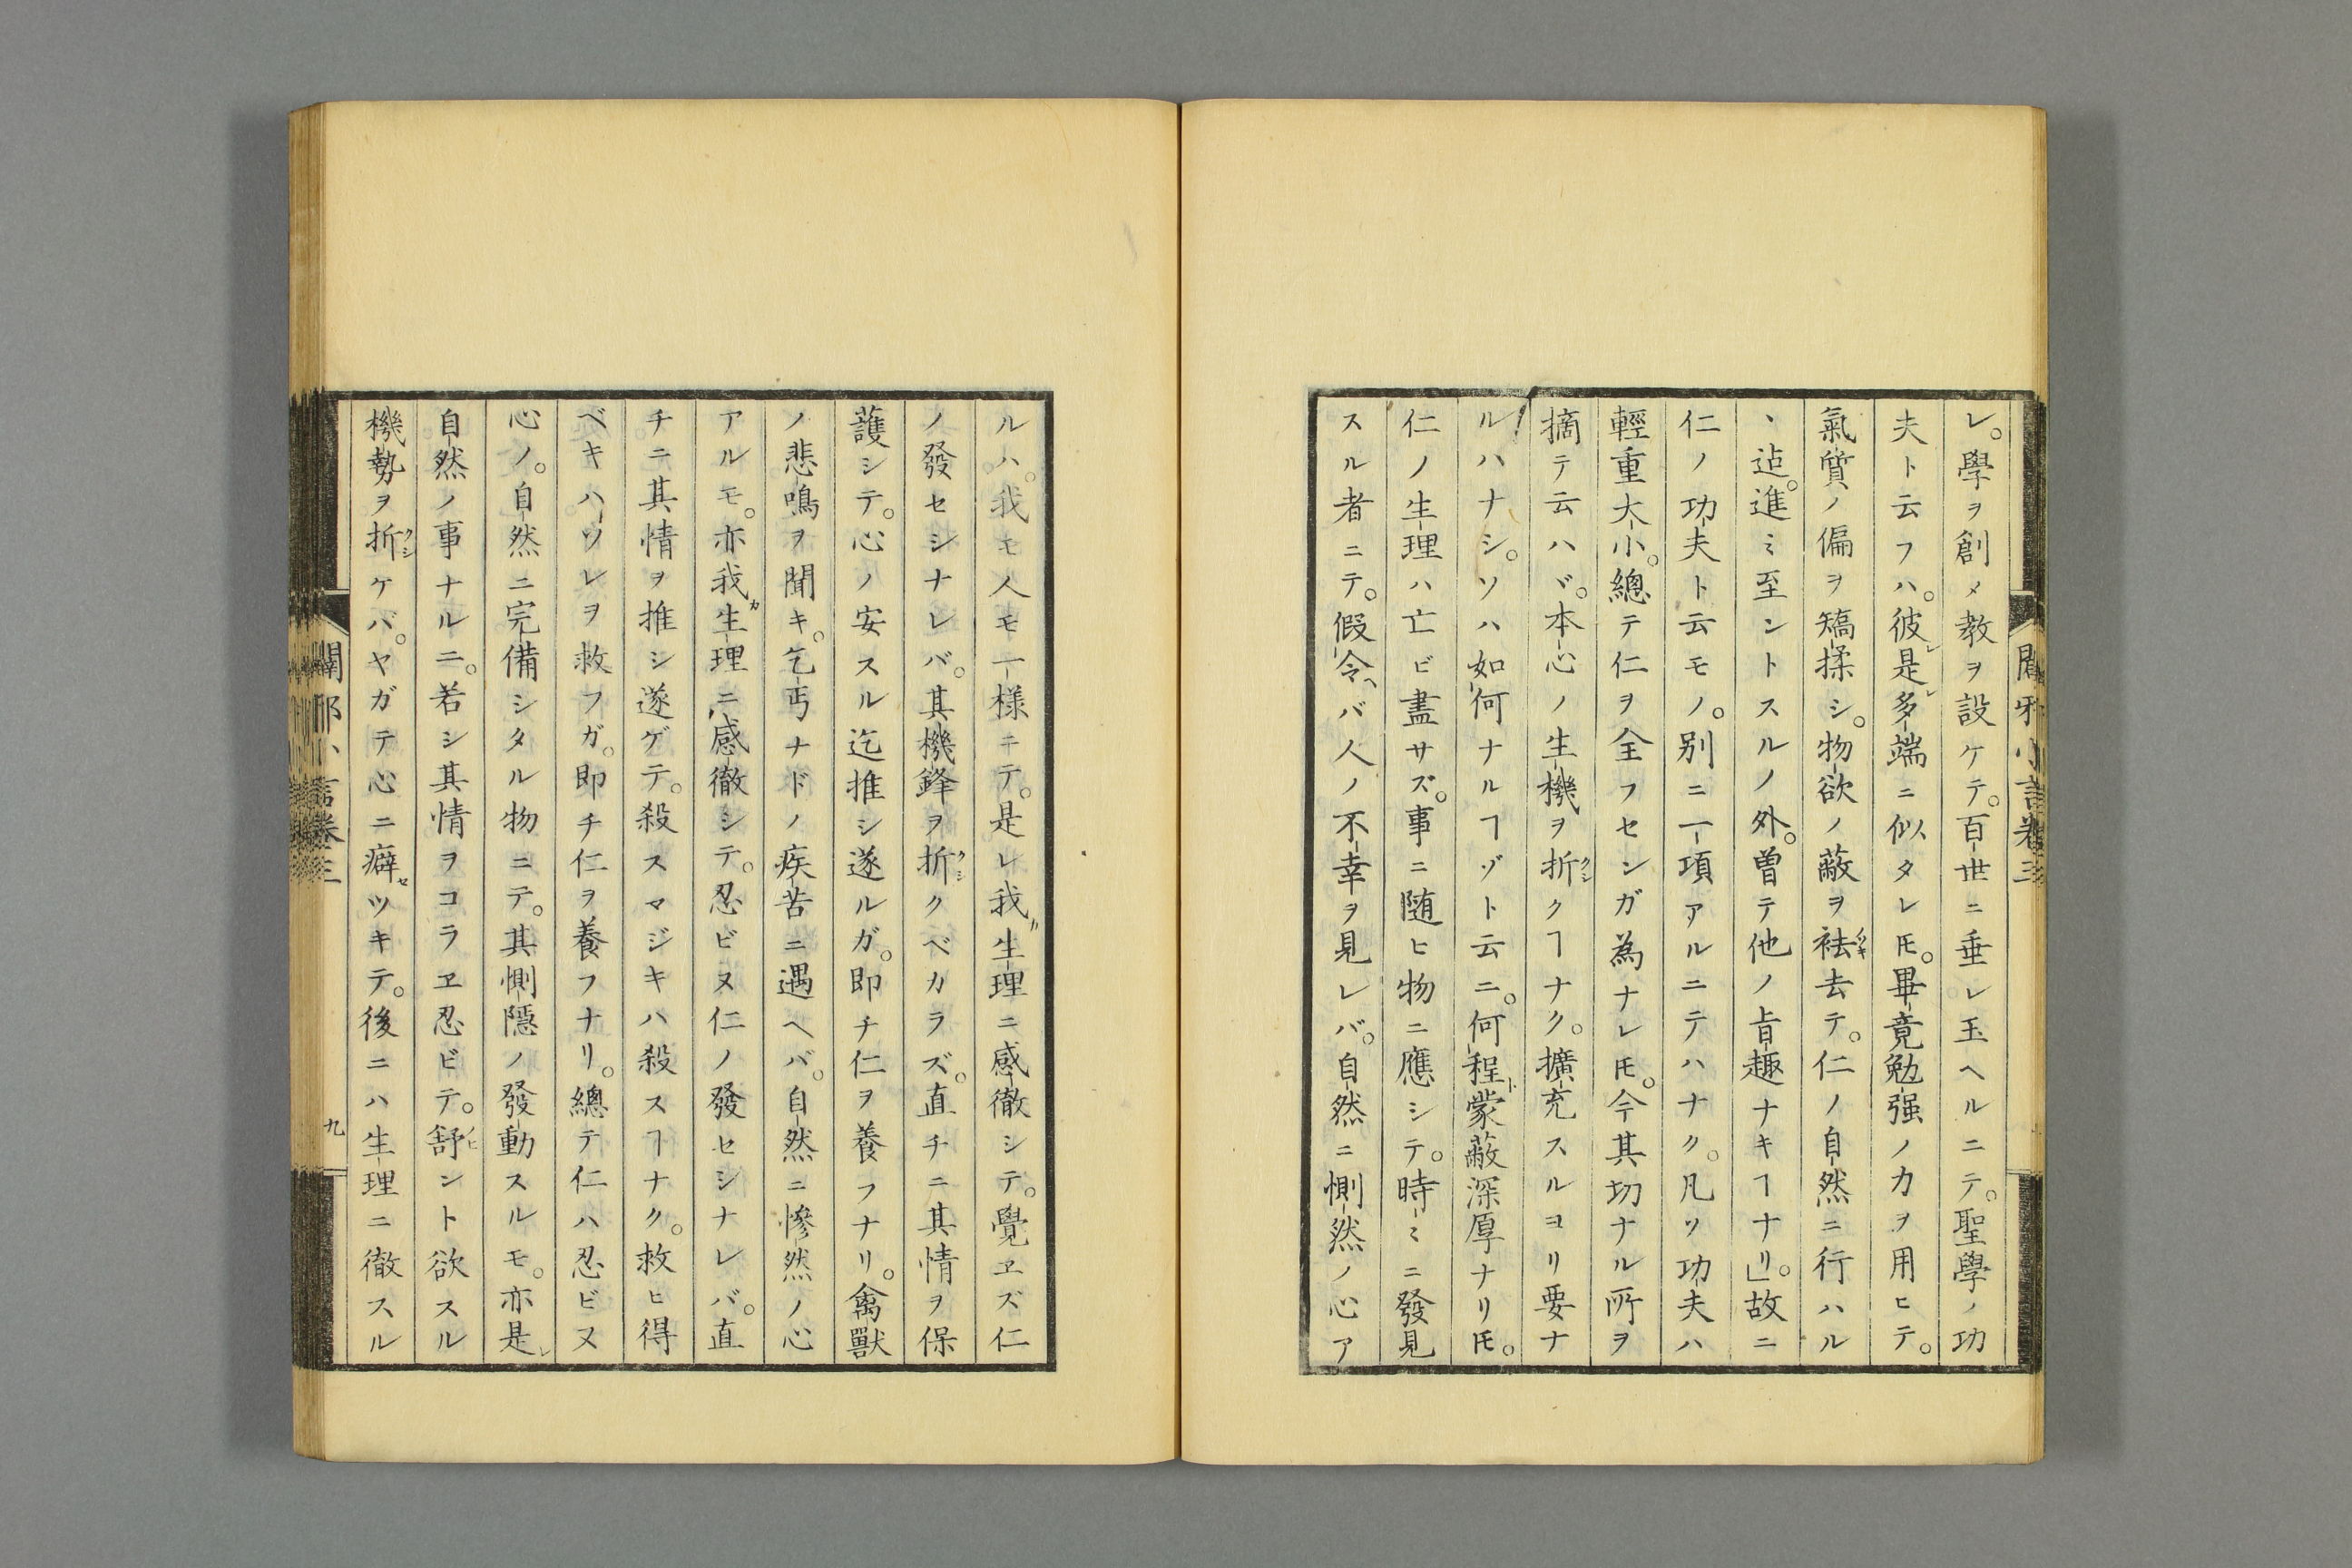 レ。學ヲ創メ教ヲ設ケテ。百世ニ垂レ玉ヘルニテ。聖學ノ功
夫ト云フハ。彼レ是レ多端ニ似タレ𪜈。畢竟勉强ノ力ヲ用ヒテ。
氣質ノ偏ヲ矯揉シ。物欲ノ蔽ヲ袪ノケ去テ。仁ノ自然ニ行ハル
ヽ迠。進ミ至ントスルノ外。曽テ他ノ旨趣ナキヿナリ」。故ニ
仁ノ功夫ト云モノ。别ニ一項アルニテハナク。凡ソ功夫ハ
輕重大小。總テ仁ヲ全フセンガ為ナレ𪜈。今其切ナル所ヲ
摘テ云ハヾ。本心ノ生機ヲ折クシクヿナク。擴充スルヨリ要ナ
ルハナシ。ソハ如何ナルヿゾト云ニ。何程ト蒙蔽深厚ナリ𪜈。
仁ノ生理ハ亡ビ盡サズ。事ニ随ヒ物ニ應シテ。時ミニ發見
スル者ニテ。假令ヘバ人ノ不幸ヲ見レバ。自然ニ惻然ノ心ア
闢邪小言卷三
ルハ。我モ人モ一樣ニテ。是レ我ガ生理ニ感徹シテ。覺ヱズ仁
ノ發セシナレバ。其機鋒ヲ折クシクベカラズ。直チニ其情ヲ保
護シテ。心ノ安スル迄推シ遂ルガ。即チ仁ヲ養フナリ。禽獸
ノ悲鳴ヲ聞キ。乞丐ナドノ疾苦ニ遇ヘバ。自然ニ慘然ノ心
アルモ。亦我ガ生理ニ感徹シテ。忍ビヌ仁ノ發セシナレバ。直
チニ其情ヲ推シ遂ゲテ。殺スマジキハ殺スヿナク。救ヒ得
ベキハソレヲ救フガ。即チ仁ヲ養フナリ。總テ仁ハ忍ビヌ
心ノ。自然ニ完備シタル物ニテ。其惻隱ノ發動スルモ。亦是レ
自然ノ事ナルニ。若シ其情ヲコラヱ忍ビテ。舒ノヒント欲スル
機勢ヲ折クシケバ。ヤガテ心ニ癖セツキテ。後ニハ生理ニ徹スル
闢邪小言卷三
九